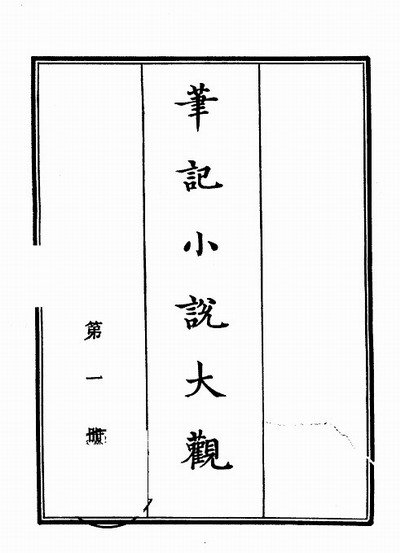 筆記小說大觀
第一